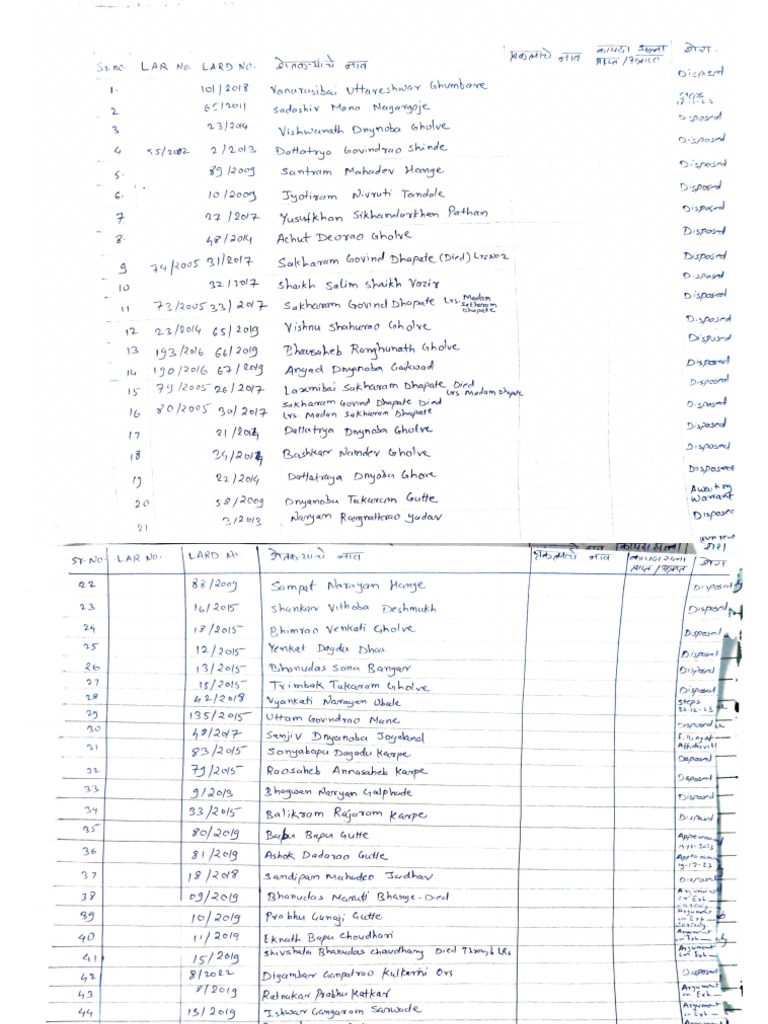 Sr.no. LAR No. LARD No. शेतकऱ्यांचे नाव प्रकल्पाचे नाव कायदा सल्ला प्राप्त/अप्राप्त शेरा.
1. 101/2018 Vanarasibai Uttareshwar Ghumbare Disposed
2 65/2011 Sadashiv Mana Nagargoje Steps
3 23/2014 Vishwanath Dnynoba Gholve Disposed
4 55/2002 2/2013 Dattatrya Govindrao Shinde Disposed
5. 89/2009 Santram Mahadev Hange Disposed
6. 10/2009 Jyotiram Nivruti Tandale Disposed
7 27/2017 Yusufkhan Sikhandarkhan Pathan Disposed
8. 48/2014 Achut Deorao Gholve Disposed
9 74/2005 31/2017 Sakharam Govind Dhapate (Died) Lrs No2 Disposed
10 32/2017 Shaikh Salim Shaikh Vazir Disposed
11 73/2005 33/2017 Sakharam Govind Dhapate Lrs. Madan Sakharam Dhapate Disposed
12 23/2014 65/2019 Vishnu Shahurao Gholve Disposed
13 193/2016 66/2019 Bhausaheb Ranghunath Gholve Disposed
14 190/2016 67/2019 Angad Dnynoba Gaikwad Disposed
15 79/2005 26/2017 Laxmibai Sakharam Dhapate Died Lrs. Madam Dhapate Disposed
16 80/2005 30/2017 Sakharam Govind Dhapate Died Lrs. Madan Sakharam Dhapate Disposed
17 21/2014 Dattatrya Dnynoba Gholve Disposed
18 24/2014 Bashkar Namdev Gholve Disposed
19 22/2014 Dattatraya Dnyoba Ghove Disposed
20 58/2009 Dnyanobu Tukaram Gutte Awaiting Warrant
21 3/2013 Narayam Ramgnathrao Yadav Disposed
Sr.No. LAR No. LARD No. शेतकऱ्याचे नाव प्रकल्पाचे नाव कायदा सल्ला प्राप्त/अप्राप्त शेरा
22 88/2009 Sampat Narayam Hange Disposed
23 16/2015 Shankar Vithoba Deshmukh Disposed
24 18/2015 Bhimrao Venkati Gholve Disposed
25 12/2015 Yenkat Dagdu Dhas Disposed
26 13/2015 Bhanudas Sona Bangar Disposed
27 15/2015 Trimbak Tukaram Gholve Disposed
28 42/2018 Vyankati Narayan Ubale Steps 22-12-23
29 135/2015 Uttam Govindrao Mane Disposed
30 48/2017 Sanjiv Dnyanoba Jogdand Filling of Affidavit
31 83/2015 Sonyabapu Dagadu Karpe Disposed
32 79/2015 Raosaheb Annasaheb Karpe Disposed
33 9/2013 Bhagwan Narayan Galphade Disposed
34 33/2015 Balikram Rajaram Karpe Disposed
35 80/2019 Bapu Bapu Gutte
36 81/2019 Ashok Dadarao Gutte
37 18/2018 Sandipam Mahadeo Jadhav Disposed
38 09/2019 Bhanudas Maruti Bhange-Died Argument on Exh
39 10/2019 Prabhu Ganaji Gutte Argument on Exh
40 11/2019 Eknath Bapu Choudhari Argument on Exh
41 15/2019 Shivshala Bhanudas Chaudhary Died Through LRs Argument on Exh
42 8/2022 Digambar Ganpatrao Kulkarni Ors Disposed
43 8/2019 Ratnakar Prabhu Katkar Argument on Exh
44 13/2019 Ishwar Gangaram Sarwade Argument